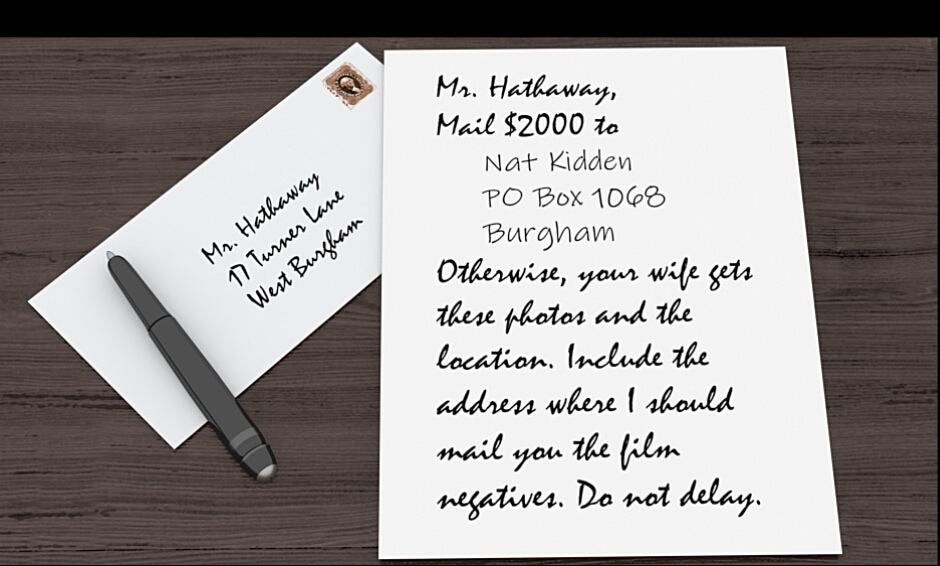 Mr. Hathaway
17 Turner Lane
West Burgham
Mr. Hathaway,
Mail $2000 to
Nat Kidden
PO Box 1068
Burgham
Otherwise, your wife gets
these photos and the
location. Include the
address where I should
mail you the film
negatives. Do not delay.